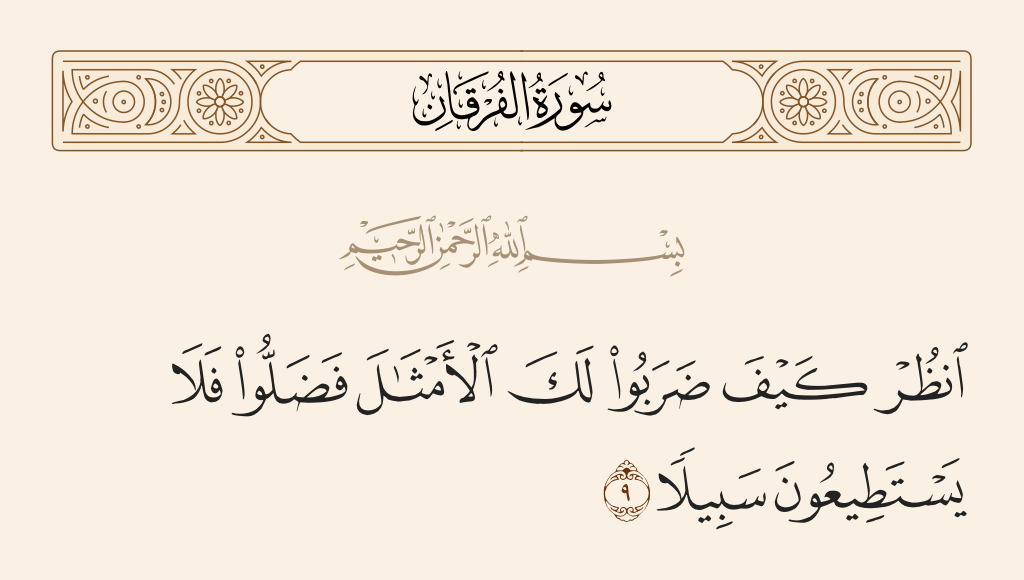 سُورَةُ الْفُرْقَانِ
بِسْمِ ٱللَّهِ ٱلرَّحْمَٰنِ ٱلرَّحِيمِ
ٱنظُرْ كَيْفَ ضَرَبُوا۟ لَكَ ٱلْأَمْثَـٰلَ فَضَلُّوا۟ فَلَا
يَسْتَطِيعُونَ سَبِيلًا ٩